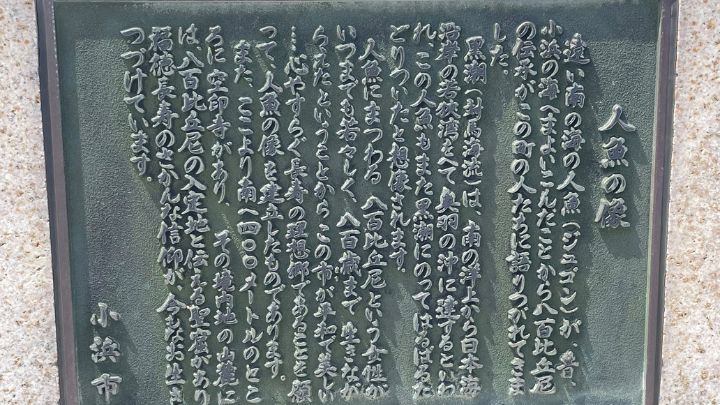 人魚の像
遠い南の海の人魚(ジュゴン)が、昔、
小浜の海へまよいこんだことから八百比丘尼
の伝承がこの町の人たちに語りつがれてきま
した。
黒潮(対馬海流)は、南の洋上から日本海
沿岸の若狭湾をへて奥羽の沖に達するといわ
れ、この人魚もまた黒潮にのってはるばるた
どりついたと想像されます。
人魚にまつわる 八百比丘尼という女性が
いつまでも若々しく、八百歳まで 生きなが
らえたということから、この市が平和で美しい
心やすらぐ長寿の理想郷であることを願
って、人魚の像を建立したものであります。
また、ここより南一四〇〇メートルのとこ
ろに 空印寺があり、 その境内地の山麓に
は八百比丘尼の入定地と伝える聖窟があり
福徳長寿のさかんな信仰が、今もなお生き
つづけています。
小浜市